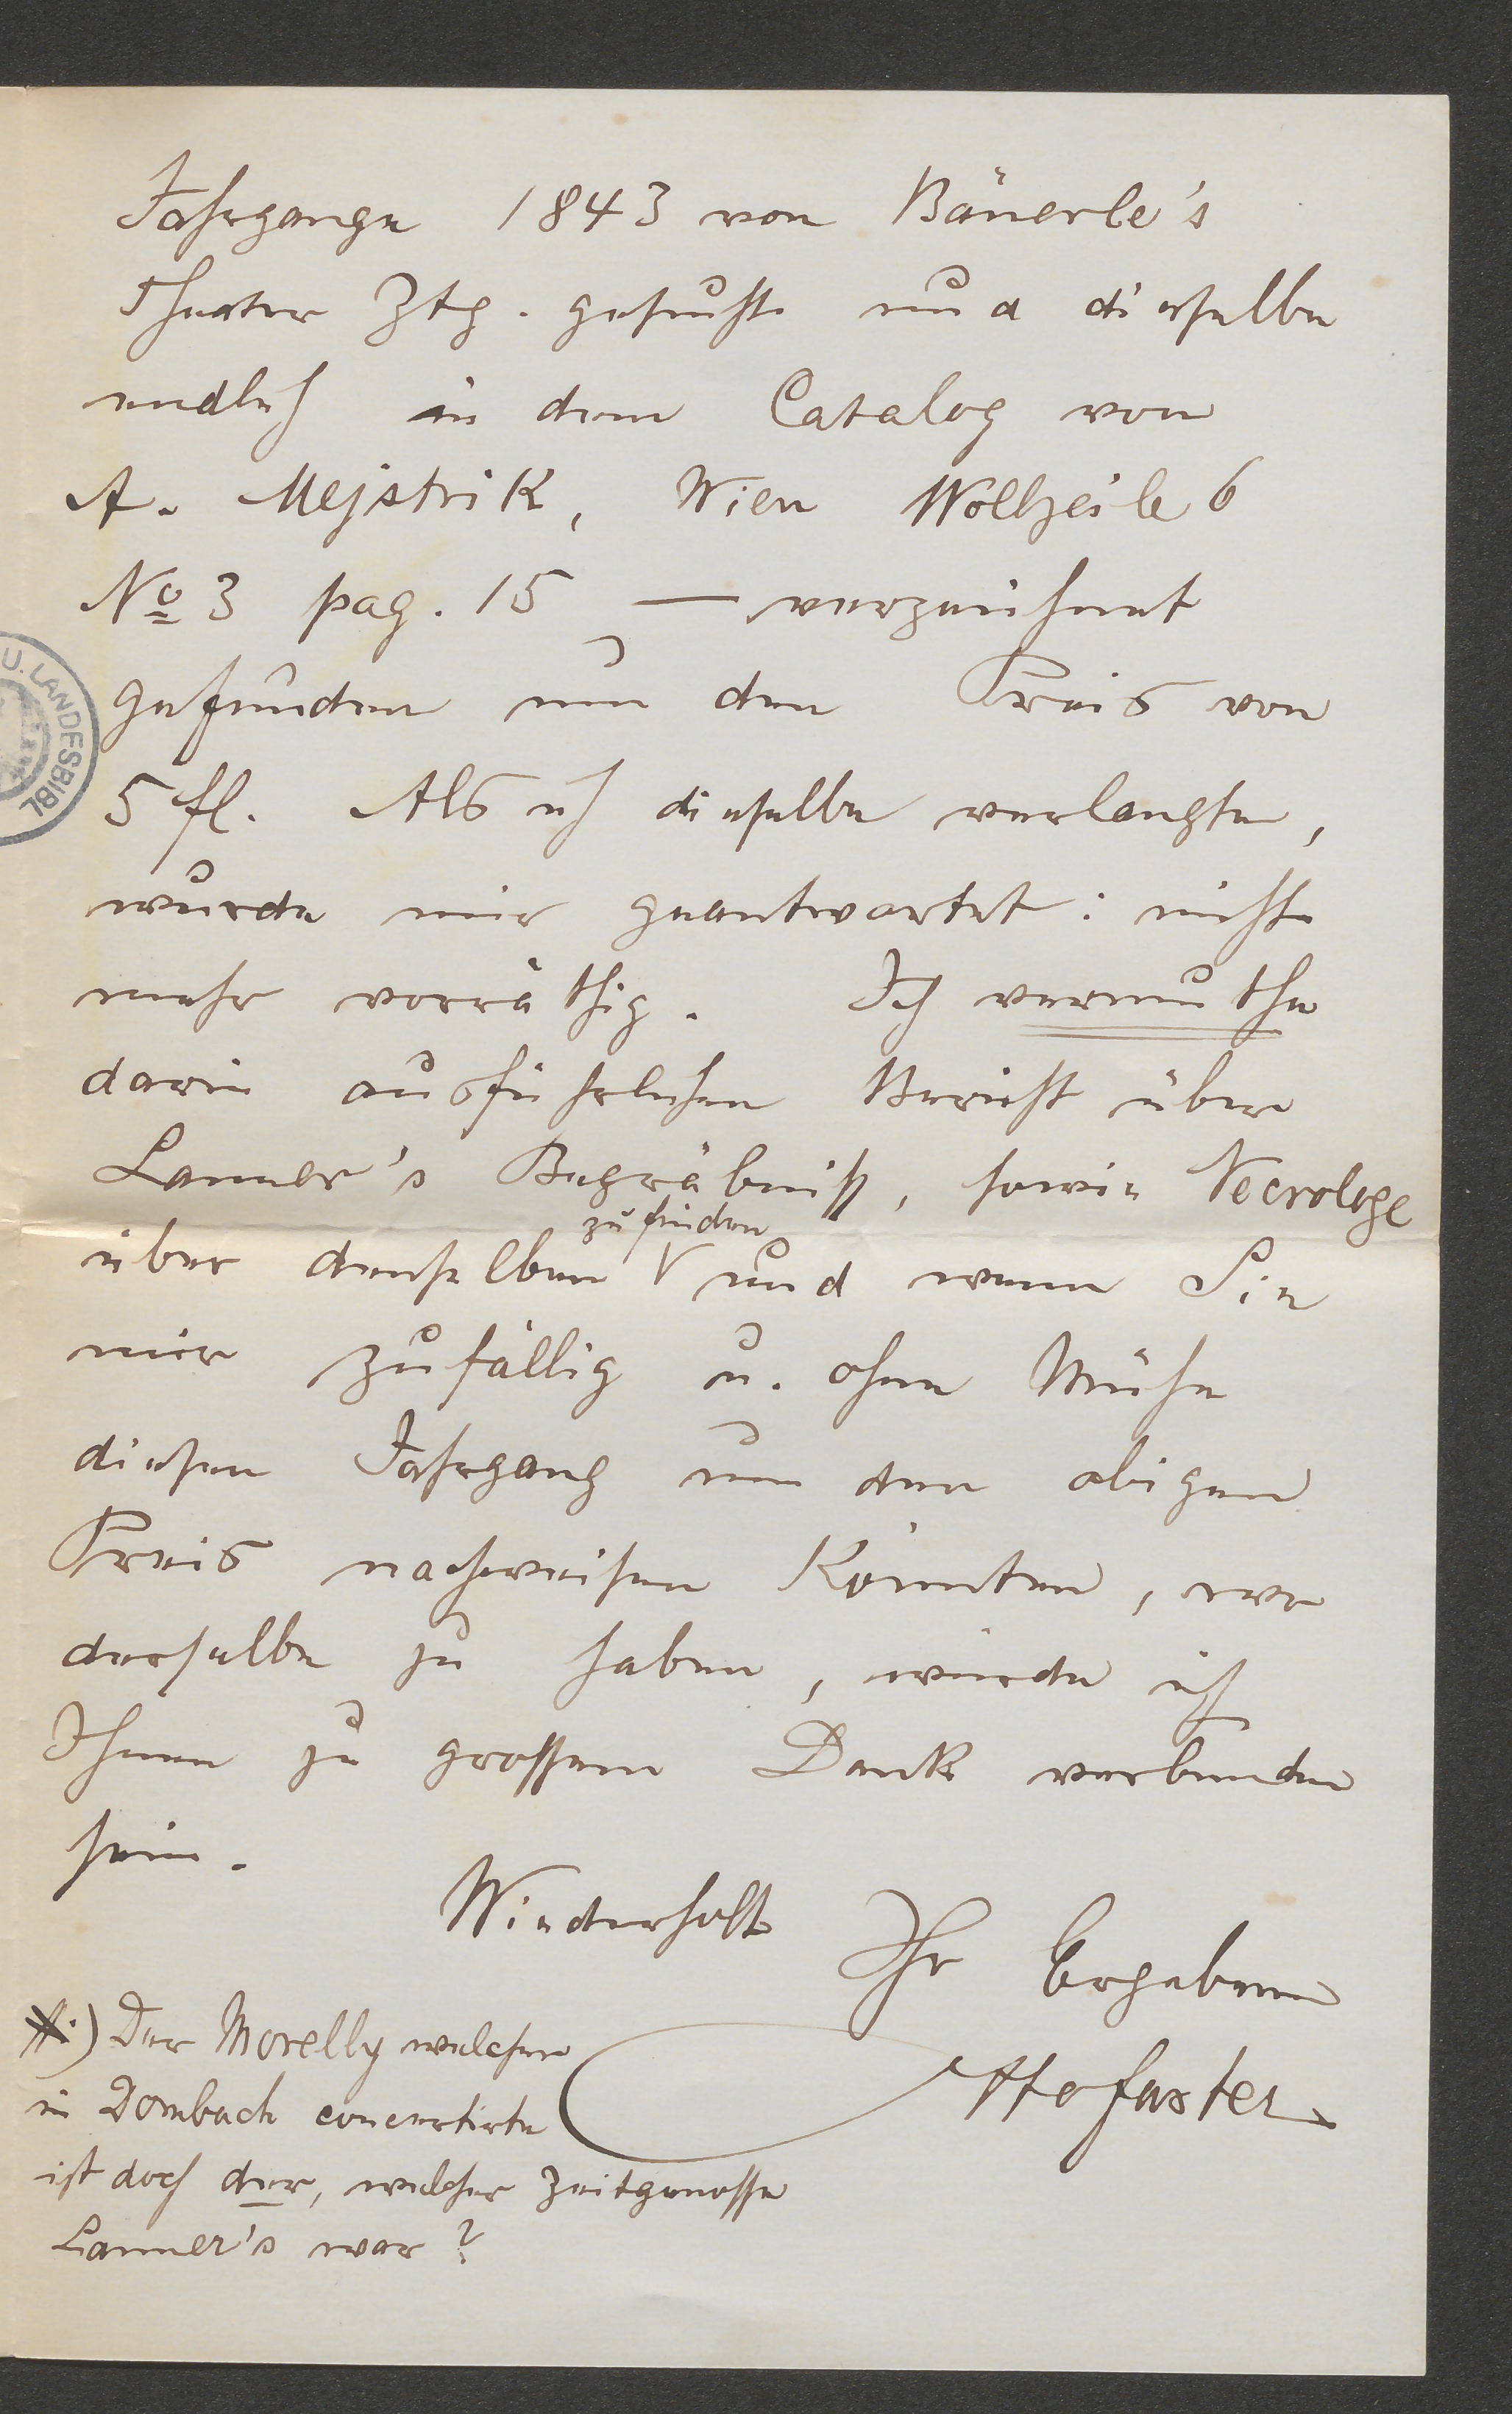 Jahrgange 1843 von Bäuerle's
Theater Ztg. gesucht und dieselbe
endlich in dem Catalog von
A. Mejstrik, Wien Wollzeile 6
No 3 pag. 15 — verzeichnet
gefunden um den Preis von
5 fl. Als ich dieselbe verlangte,
wurde mir geantwortet: nicht
mehr vorräthig. Ich vermuthe
darin ausführlichen Bericht über
Lanner's Begräbniß, sowie Necrologe
zu finden
über denselben V und wenn Sie
mir zufällig u. ohne Mühe
diesen Jahrgang um den obigen
Preis nachweisen könnten, wo
derselbe zu haben, würde ich
Ihnen zu grossem Dank verbunden
sein.
Wiederholt
Ihr Ergebener
*.) Der Morelly welcher
in Dornbach concertirte
ist doch der, welcher Zeitgenosse
Lanner's war?
U. LANDESBIBL